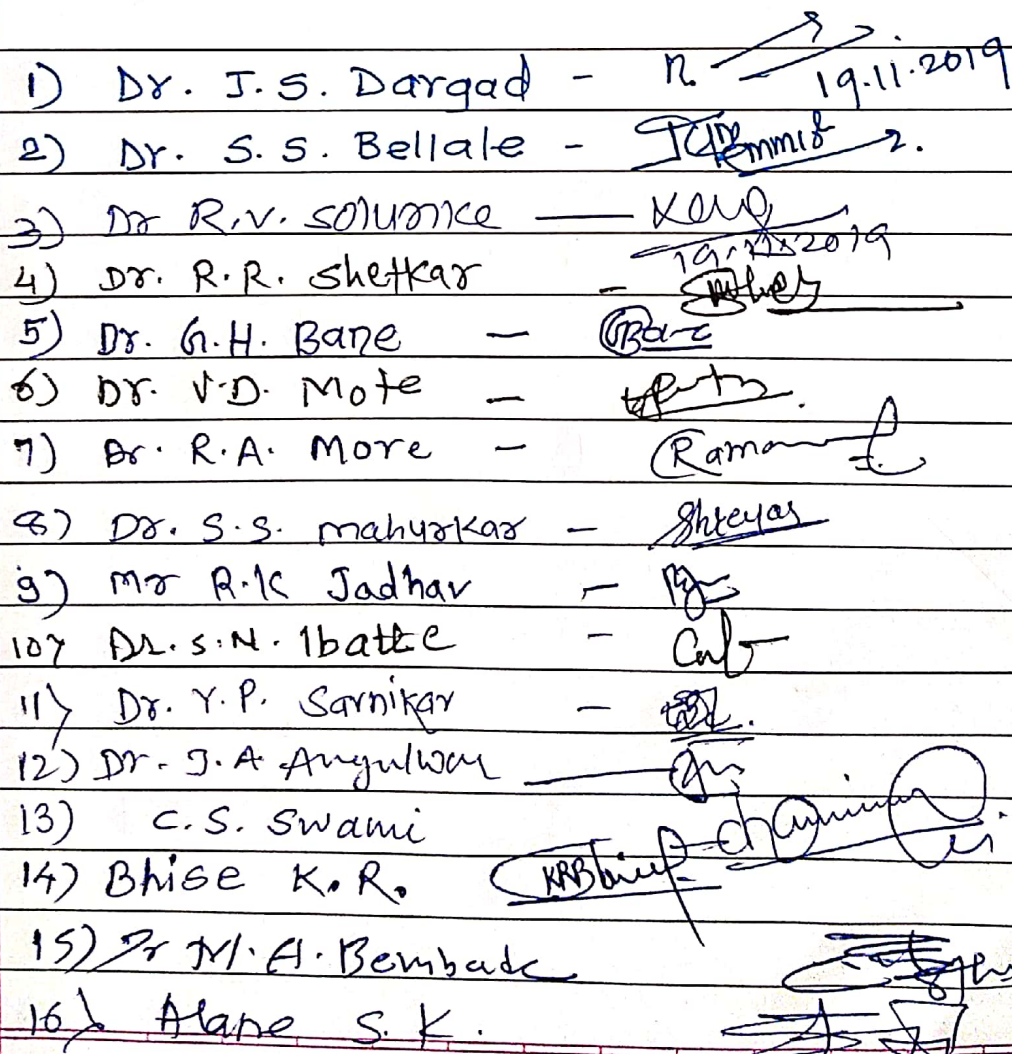 1) Dr. J.S. Dargad - 19.11.2019
2) Dr. S.S. Bellale -
3) Dr R.V. Solunke — 19.11.2019
4) Dr. R.R. Shetkar -
5) Dr. G.H. Bane - GBane
6) Dr. V.D. Mote -
7) Dr. R.A. More - Ramo
8) Dr. S.S. Mahurkar - Shreyas
9) Mr R.K Jadhav -
10) Dr. S.N. Ibatte -
11) Dr. Y.P. Sarnikar -
12) Dr. J.A Angulwar
13) C.S. Swami
14) Bhise K.R. KRBhise
15) Dr M.A. Bembade
16) Alane S.K.